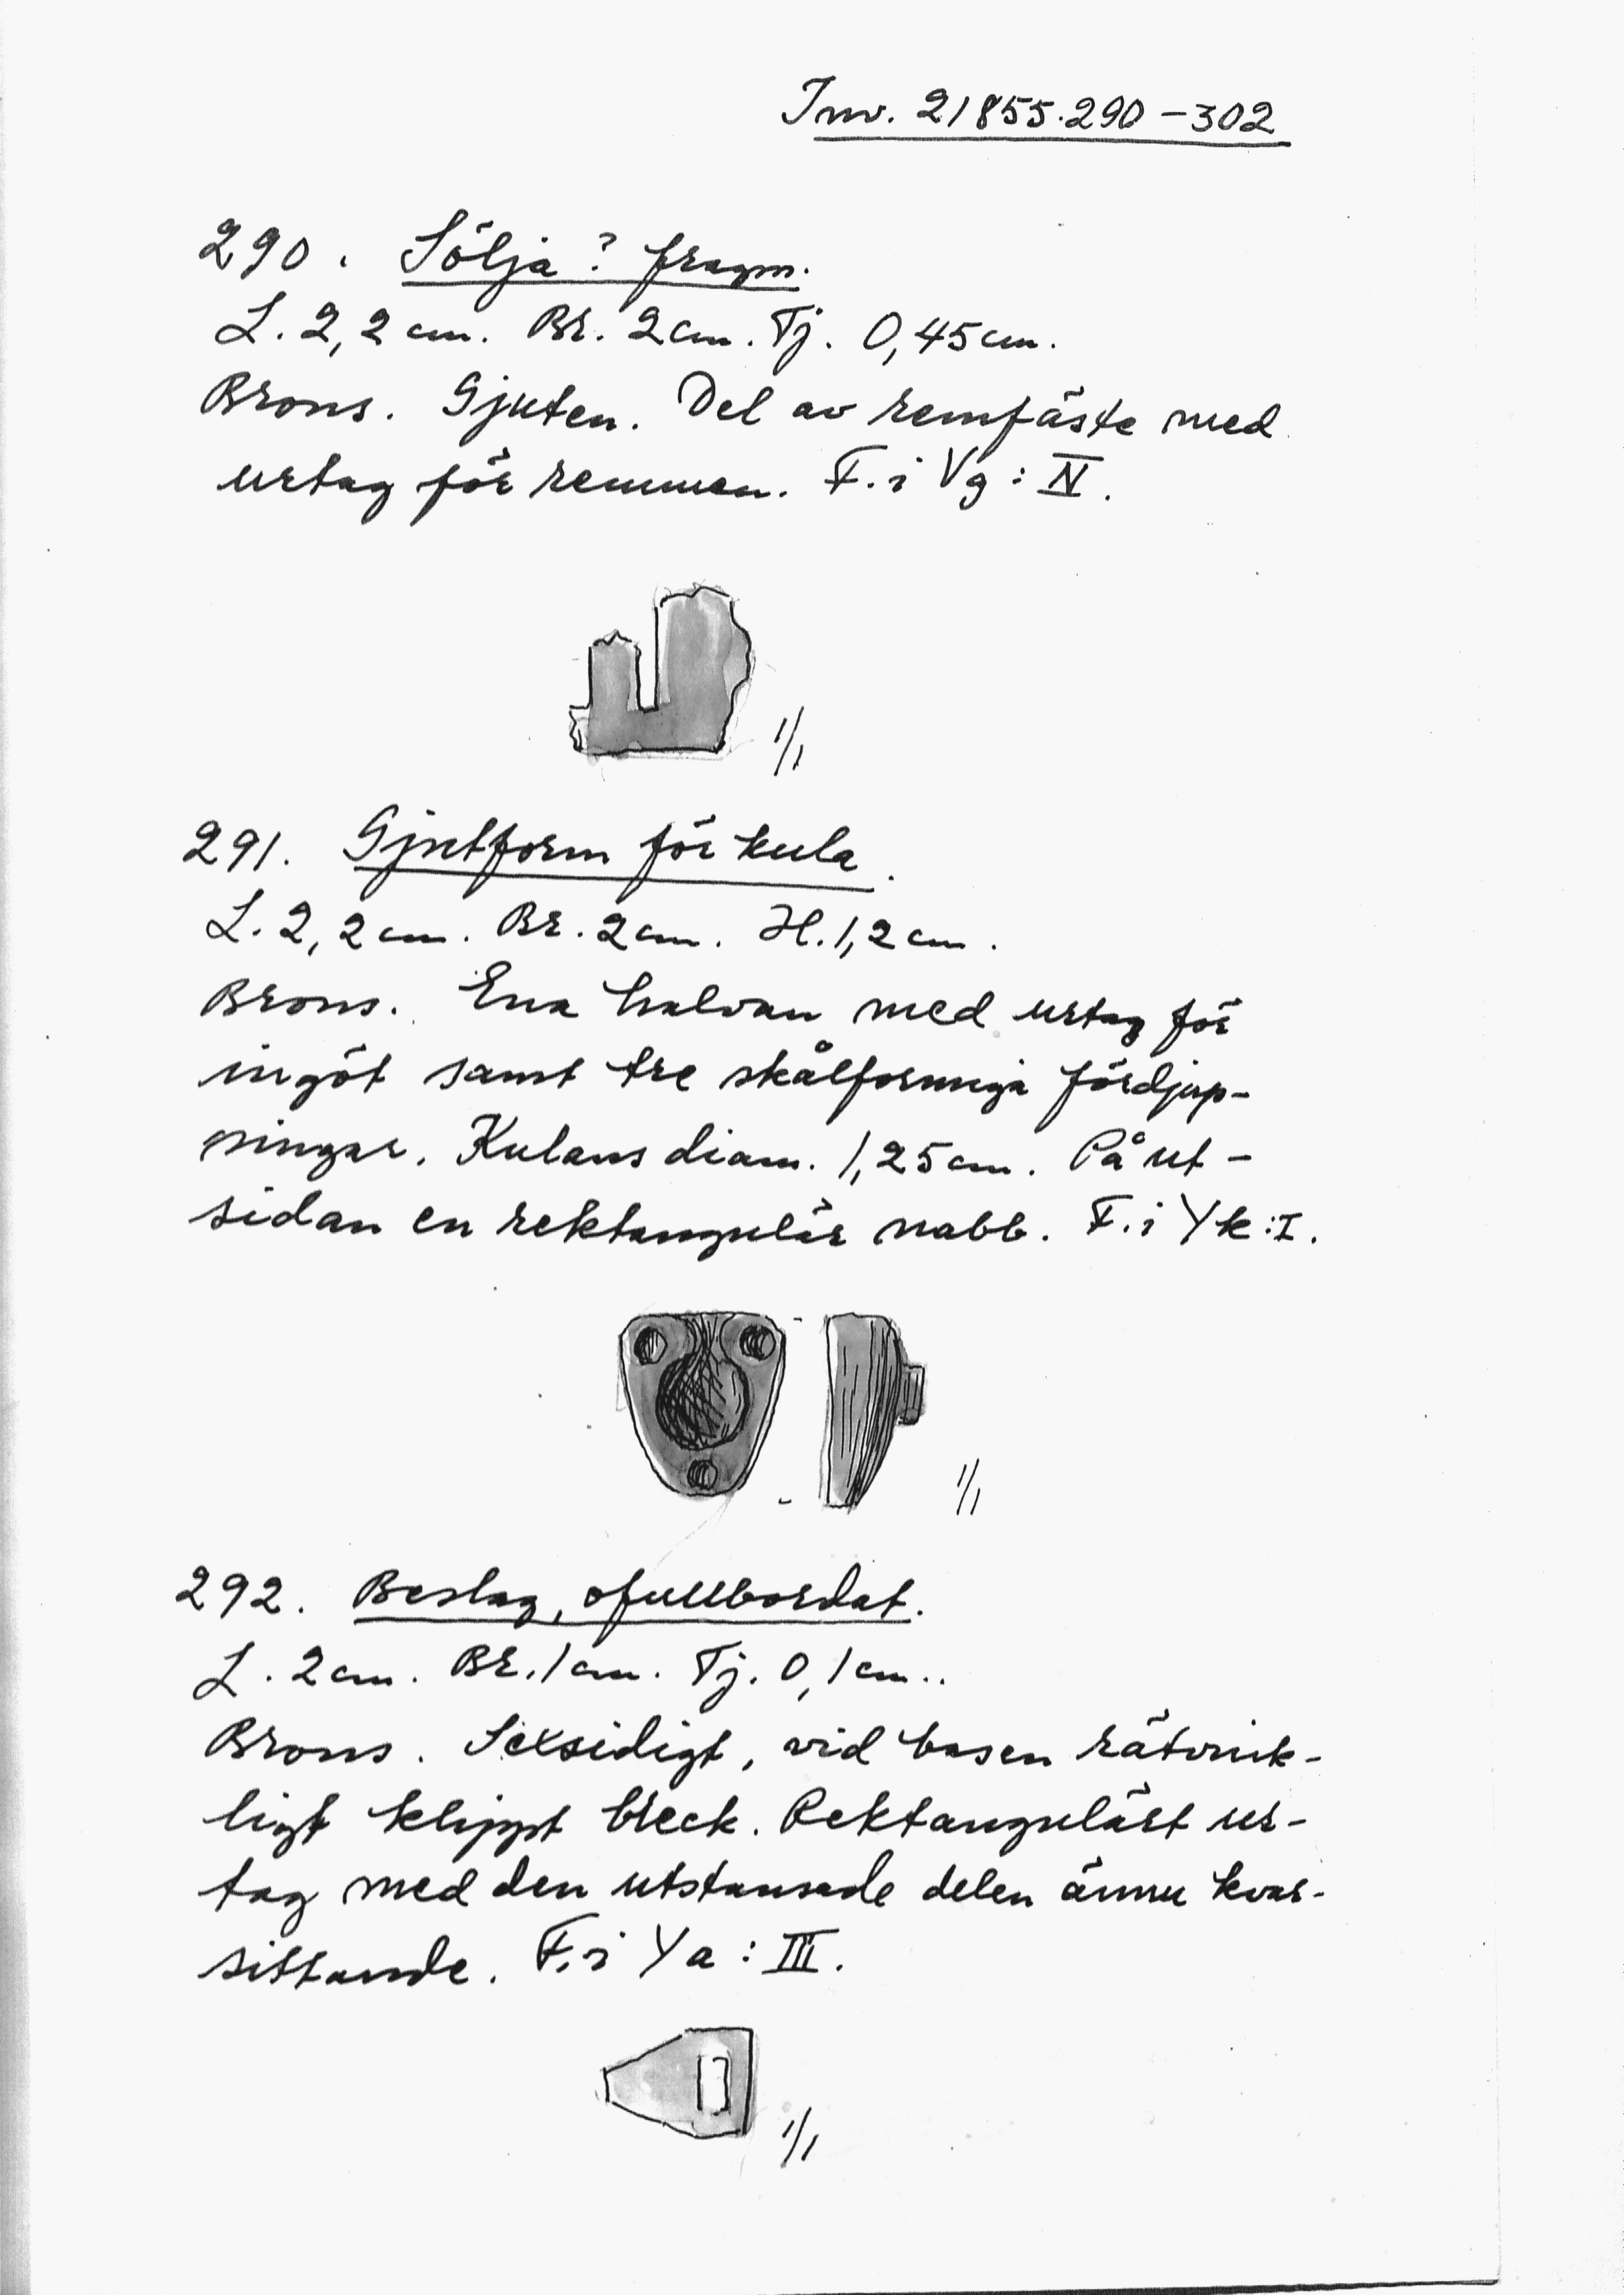 Inv. 21855.290-302
290. Sölja? fragm.
L. 2,2 cm. Br. 2 cm. Tj. 0,45 cm.
Brons. Gjuten. Del av remfäste med
urtag för remmen. F. i Vg: IV.
1/1
291. Gjutform för kula.
L. 2,2 cm. Br. 2 cm. H. 1,2 cm.
Brons. Ena halvan med urtag för
ingöt samt tre skålformiga fördjup-
ningar. Kulans diam. 1,25 cm. På ut-
sidan en rektangulär nabb. F. i Yk: I.
1/1
292. Beslag, ofullbordat.
L. 2 cm. Br. 1 cm. Tj. 0,1 cm..
Brons. Sexsidigt, vid basen rätvink-
ligt klippt bleck. Rektangulärt ur-
tag med den utstansade delen ännu kvar-
sittande. F. i Ya: III.
1/1